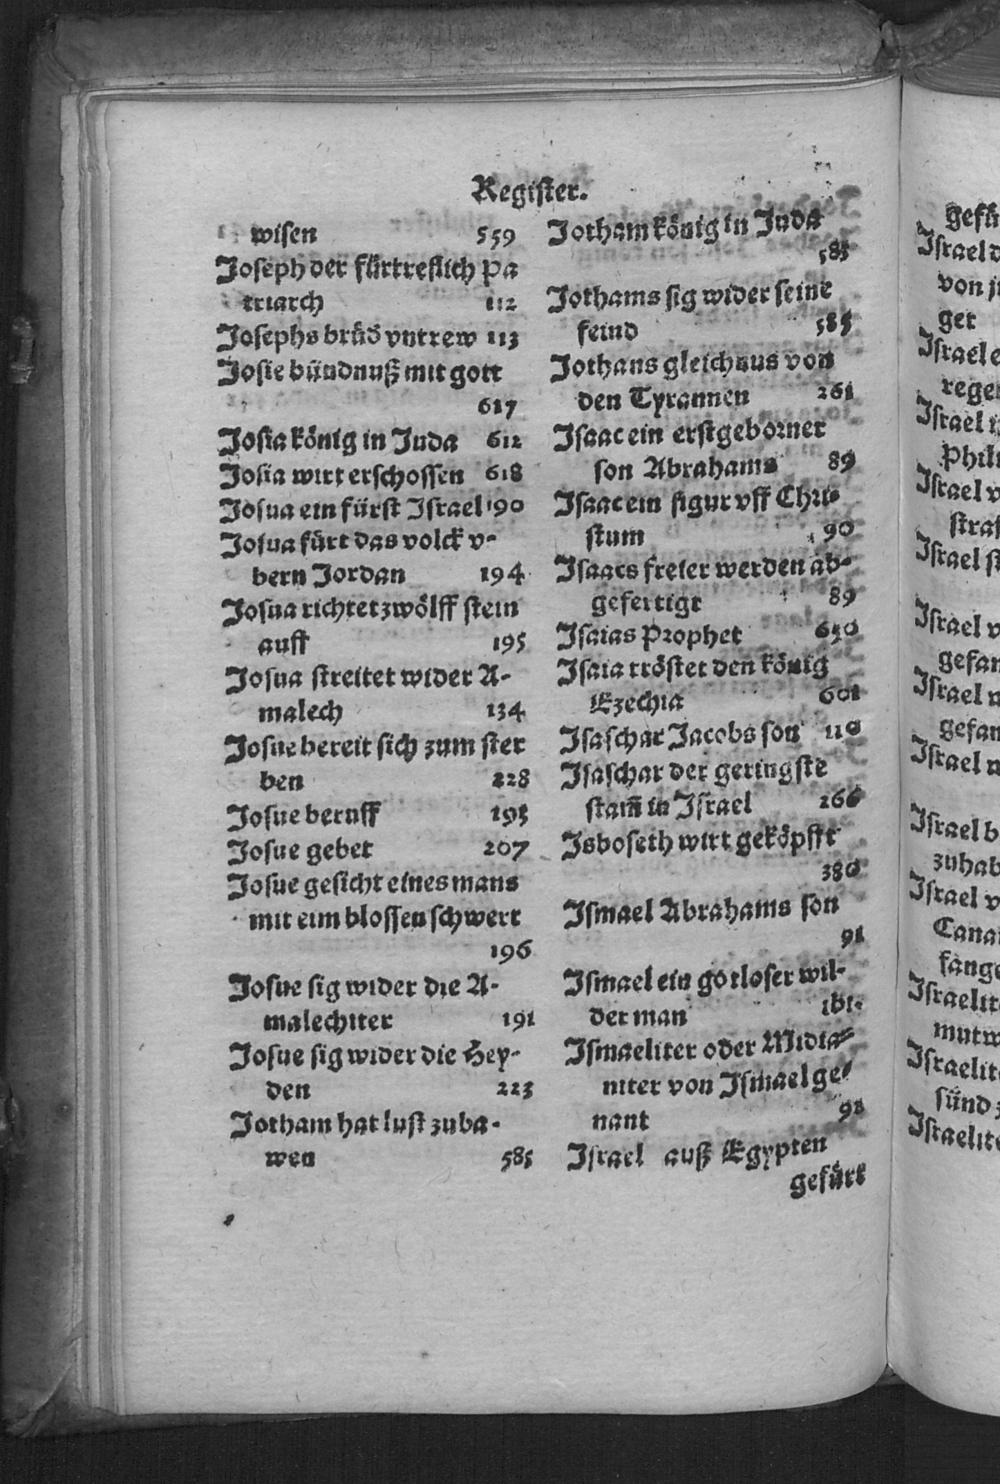 Register.
wisen 559
Joseph der fürtreflich pa
triarch 112
Josephs brüd vntrew 113
Josie bündnuß mit gott
617
Josia könig in Juda 612
Josia wirt erschossen 618
Josua ein fürst Israel 190
Josua fürt das volck v-
bern Jordan 194
Josua richtet zwölff stein
auff 195
Josua streitet wider A-
malech 134
Josue bereit sich zum ster
ben 228
Josue beruff 195
Josue gebet 207
Josue gesicht eines mans
mit eim blossen schwert
196
Josue sig wider die A-
malechiter 191
Josue sig wider die Hey-
den 223
Jotham hat lust zuba-
wen 585
Jotham könig in Juda
585
Jothams sig wider seine
feind 585
Jothans gleichnus von
den Tyrannen 261
Isaac ein erstgeborner
son Abrahams 89
Isaac ein figur vff Chri-
stum 90
Isaacs freier werden ab-
gefertigt 89
Isaias Prophet 650
Isaia tröstet den könig
Ezechia 601
Isaschar Jacobs son 110
Isaschar der geringste
stam̄ in Israel 266
Isboseth wirt geköpfft
380
Ismael Abrahams son
91
Ismael ein gotloser wil-
der man ibi-
Ismaeliter oder Midia-
niter von Ismael ge-
nant 91
Israel auß Egypten
gefürt
Israel
von
ger
Israel
Israel
Israel
Israel
Israel
Israel
Israel
Israel
Israel
zuhab
Israel